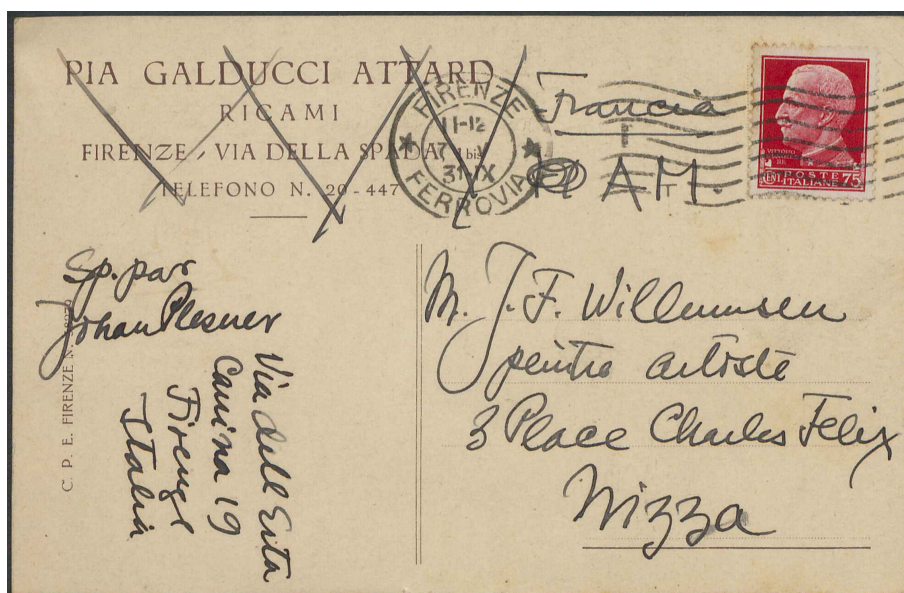 PIA GALDUCCI ATTARD
RICAMI
FIRENZE - VIA DELLA SPADA 1 bis
TELEFONO N. 20-447
FIRENZE
11-12
31-IX
FERROVIA
Francia
AM.
POSTE
ITALIANE 75
Sp. par
Johan Plesner
Via dell Erta
Canina 19
Firenze
Italia
C. P. E. FIRENZE N.
M. J. F. Willumsen
peintre artiste
3 Place Charles Felix
Nizza